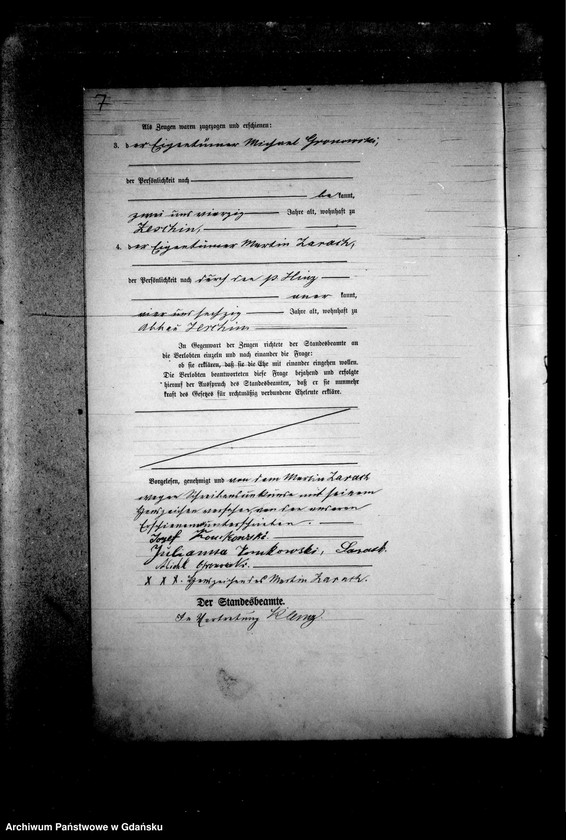 7
Als Zeugen waren zugezogen und erschienen:
3. der Eigentümer Michael Gronowski,
der Persönlichkeit nach
be kannt,
zwei und vierzig Jahre alt, wohnhaft zu
Zeschin,
4. der Eigentümer Martin Zarach,
der Persönlichkeit nach durch den p. Hinz
aner kannt,
vier und sechzig Jahre alt, wohnhaft zu
Abbau Zeschin
In Gegenwart der Zeugen richtete der Standesbeamte an
die Verlobten einzeln und nach einander die Frage:
ob sie erklären, daß sie die Ehe mit einander eingehen wollen.
Die Verlobten beantworteten diese Frage bejahend und erfolgte
hierauf der Ausspruch des Standesbeamten, daß er sie nunmehr
kraft des Gesetzes für rechtmäßig verbundene Eheleute erkläre.
Vorgelesen, genehmigt und von dem Martin Zarach
wegen Schreibensunkunde mit seinem
Handzeichen versehen von den anderen
Erschienenen unterschrieben.
Jozef
Julianna Tomkowski, Zarach.
X X X. Handzeichen des Martin Zarach.
Der Standesbeamte.
In Vertretung
Archiwum Państwowe w Gdańsku